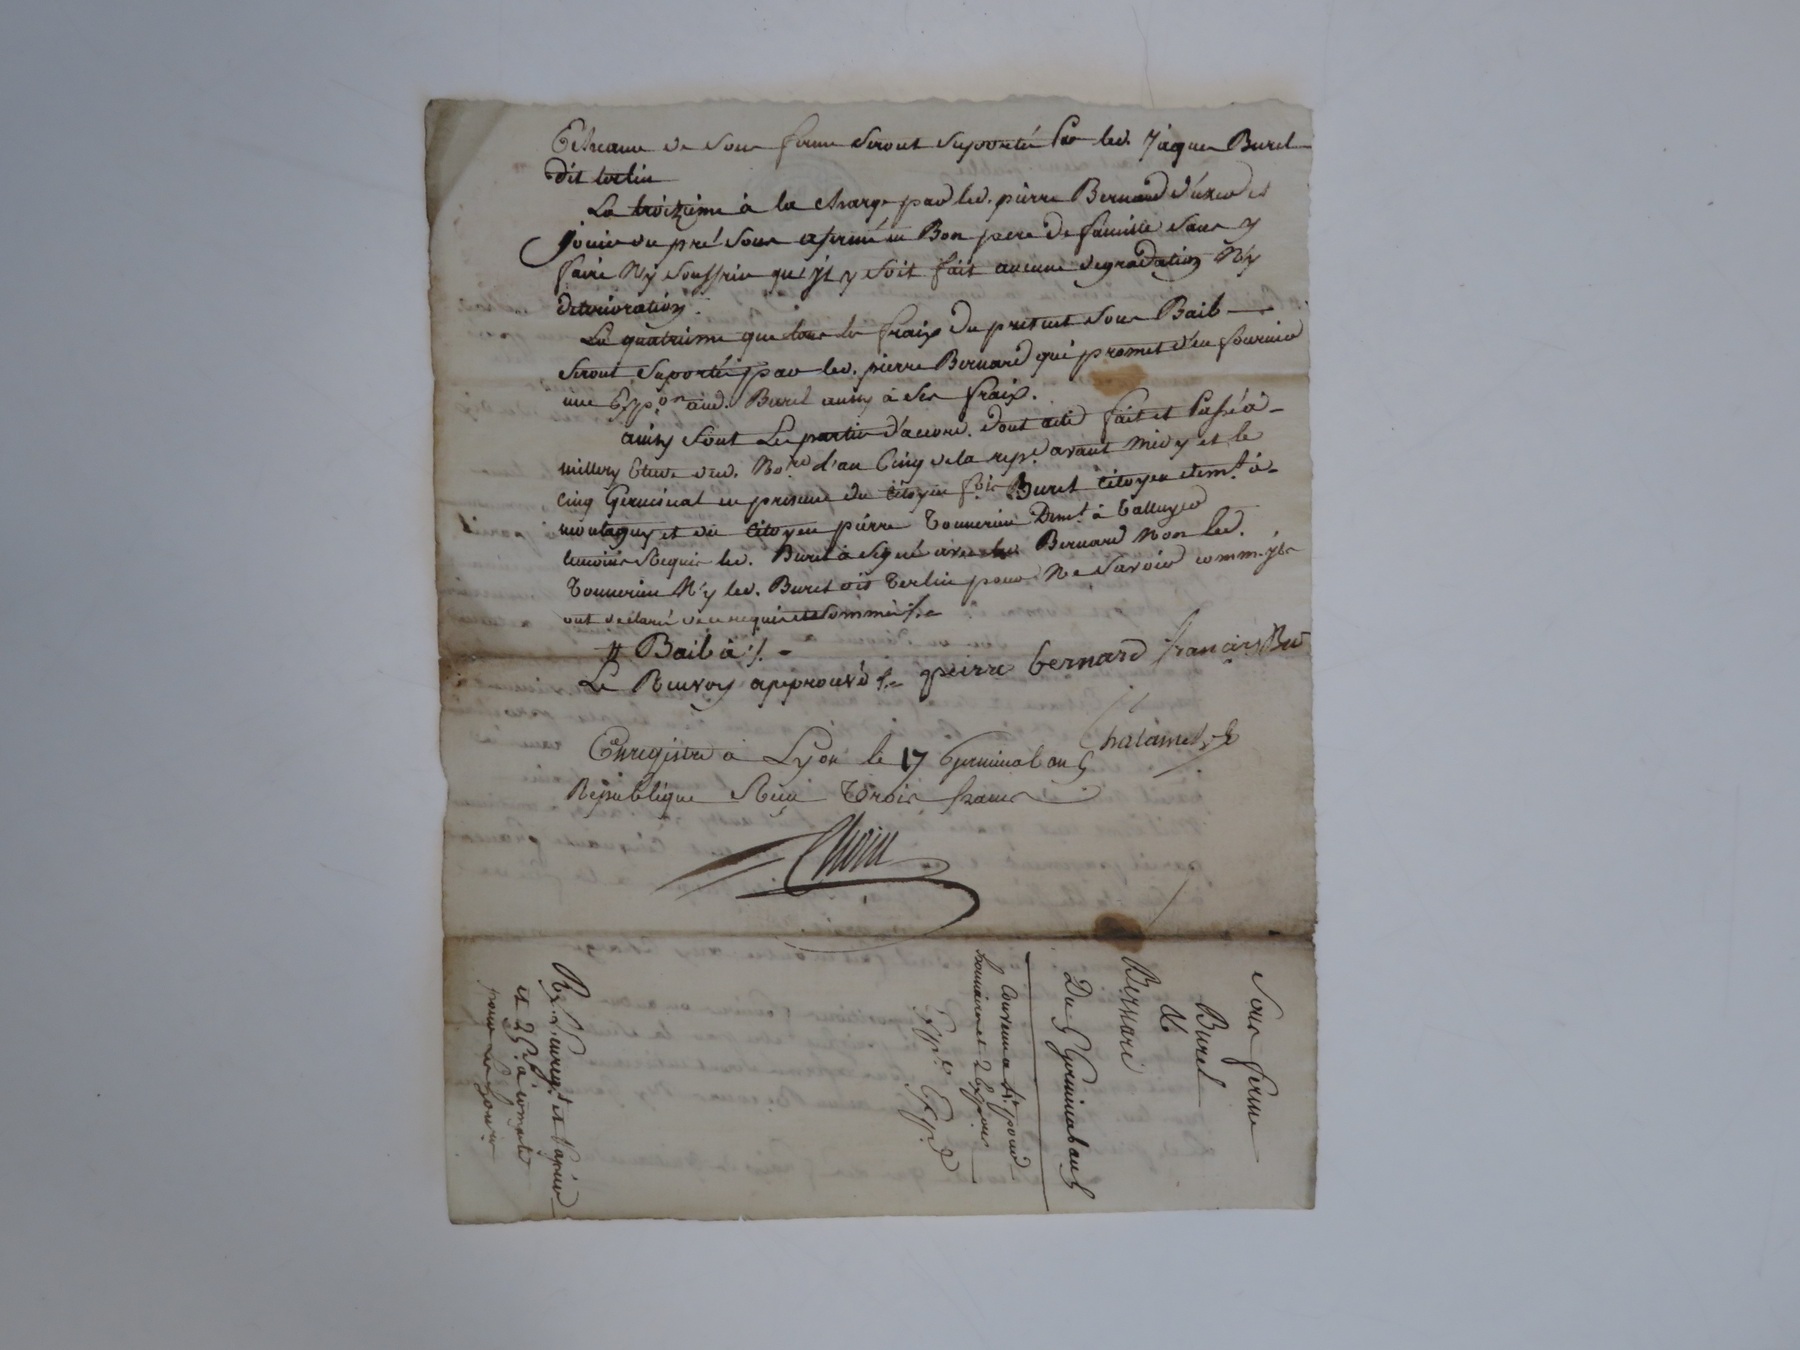 de sous ferme seront suportés par led. Jàques Burel
dit terlin
La troizieme à la charge par led. pierre Bernard d'uzer et
jouir du pré sous afermé en Bon pere de famille sans y
faire N'y souffrir qu'jl y soit fait aucune degradation N'y
deterioration.
La quatrieme que tous les fraix du present sous Bail
seront suportés par led. pierre Bernard qui promet d'en fournir
une Exp.on aud. Burel aussy à ses fraix.
ainsy sont Les parties d'accord. dont acte fait et Passé à
millery Etude dud. No.re l'an Cinq de la rep.e avant midy et le
cinq Germinal en presence du citoyen f.ois Burel citoyen dem.t à
montagny et du citoyen pierre Tonnerieu Dem.t à Talluyer
temoins Requis led. Burel a signé avec led. Bernard Non led.
Tonnerieu N'y led. Burel dit Terlin pour Ne savoir comm'jls
ont déclaré de ce requis et sommés ./.
# Bail à ./.
Le Renvoy approuvé ./. peirre bernard francois Bu
Chalamel
Enregistré à Lyon le 17 Germinal an 5
République Reçu Trois francs
Sous ferme
Burel
&
Bernard
Du 5 Germinal an 5
honnoraires et 2 Exp.ons
Exp.é Exp.é
Rx. L'enreg.t et Papier
et à compte
pour